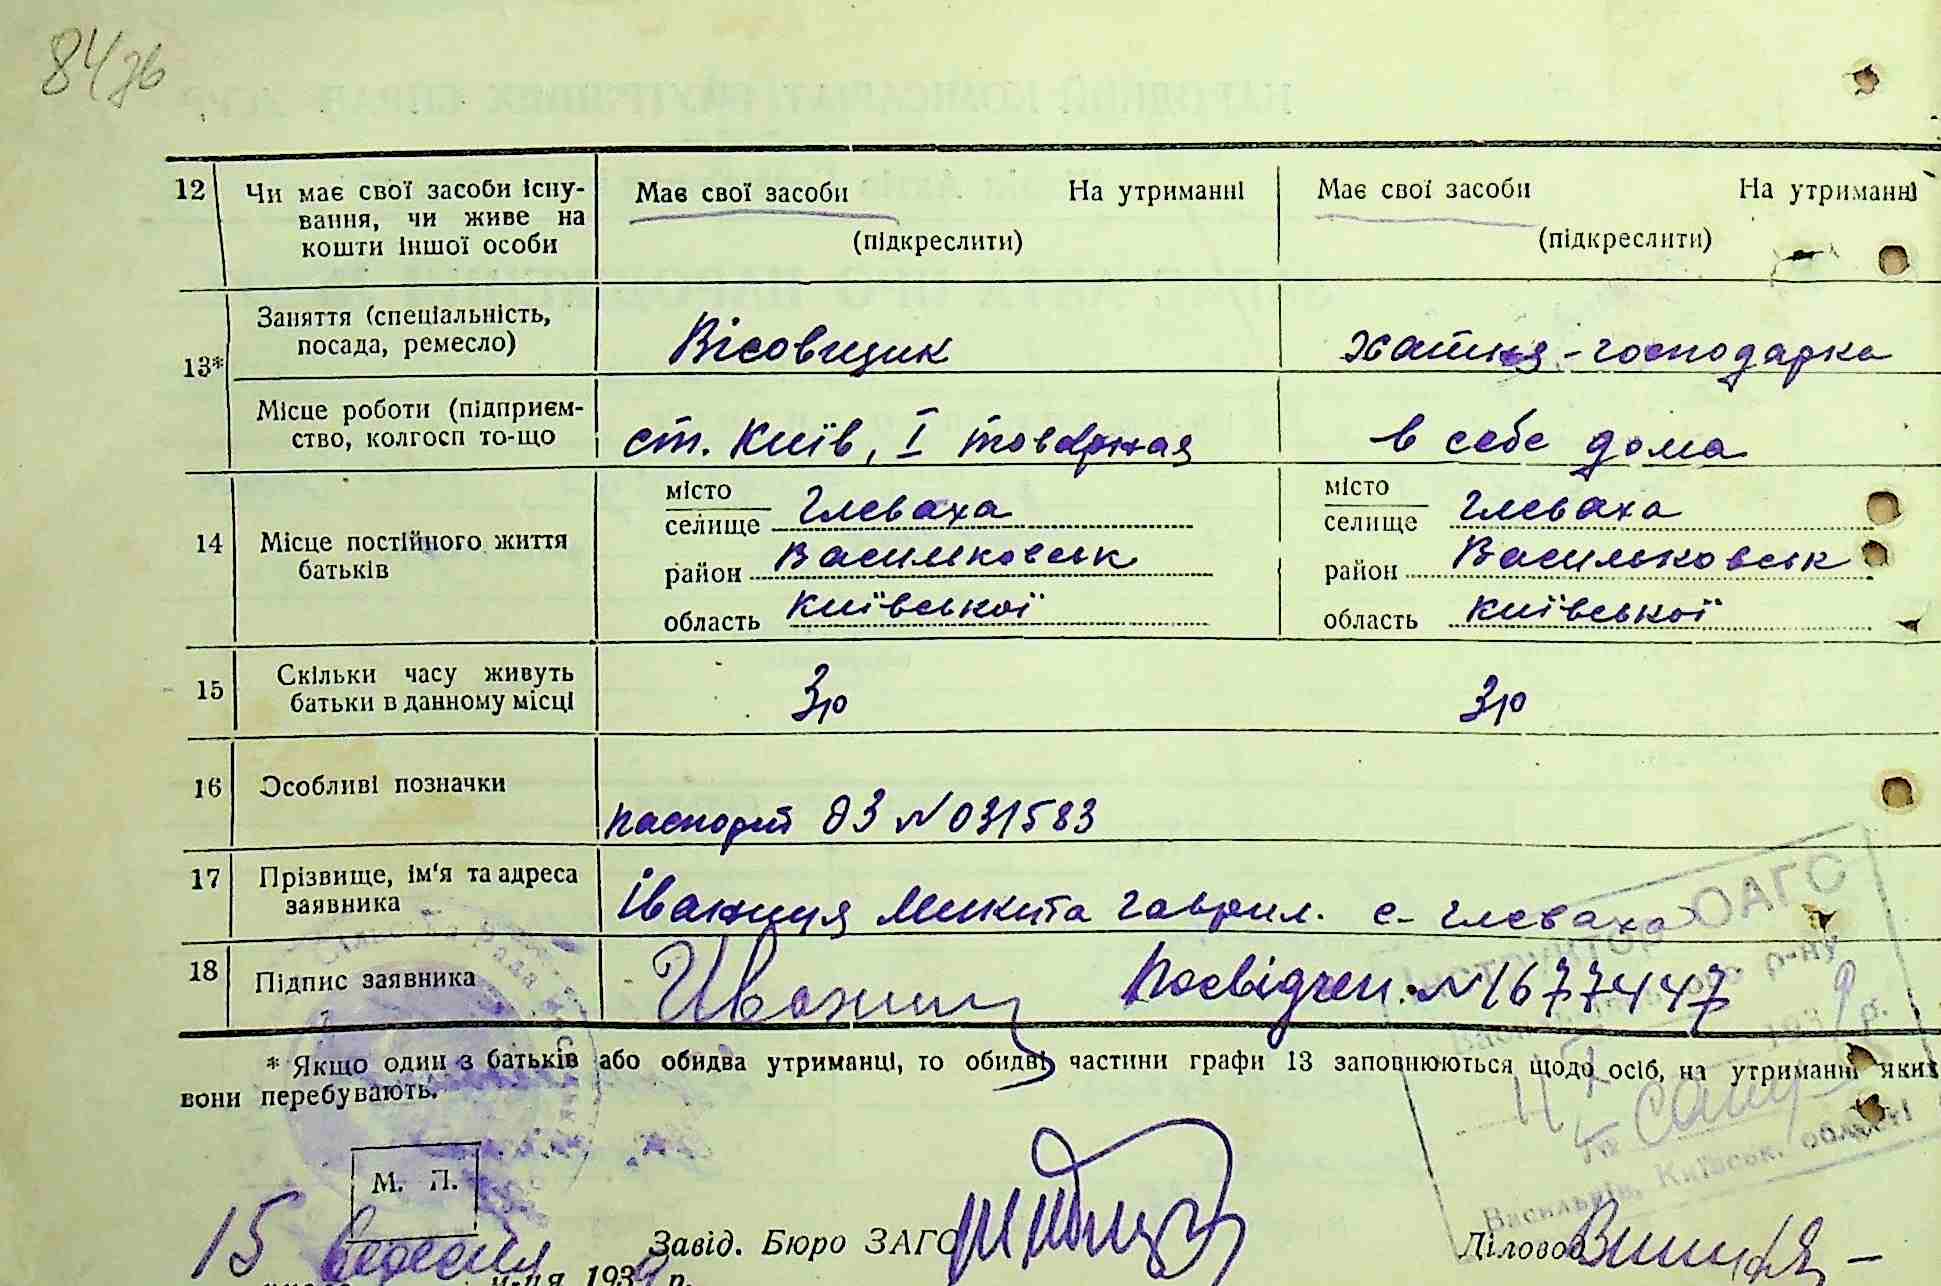 84 зв
12 Чи має свої засоби існу- Має свої засоби На утриманні Має свої засоби На утриманні
вання, чи живе на
кошти іншої особи (підкреслити) (підкреслити)
13* Заняття (спеціальність,
посада, ремесло) Вісовщик хатня-господарка
Місце роботи (підприєм-
ство, колгосп то-що ст. Київ, I товарная в себе дома
14 Місце постійного життя
батьків
місто
селище Глеваха
район Васильковськ
область Київської
місто
селище Глеваха
район Васильковськ
область Київської
15 Скільки часу живуть
батьки в данному місці 3р 3р
16 Особливі позначки
паспорт ДЗ №031583
17 Прізвище, ім'я та адреса
заявника Іваниця Микита Гаврил. с-Глеваха
18 Підпис заявника Іваниц Посвідчен. №1677447
* Якщо один з батьків або обидва утриманці, то обидві частини графи 13 заповнюються щодо осіб, на утриманні яких
вони перебувають.
Інструктор ОАГС
р-ну
1939 р.
Васильків, Київськ. області
М. П.
15 вересня 1939 р.
Завід. Бюро ЗАГС
Діловод